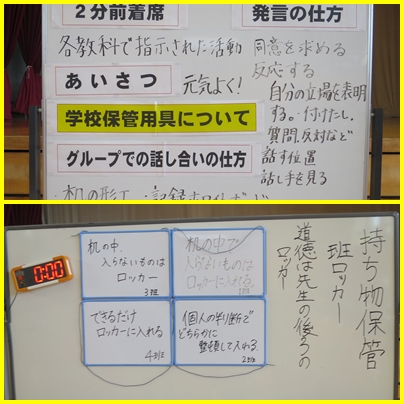 ２分前着席
発言の仕方
各教科で指示された活動
同意を求める
反応する
あいさつ
元気よく！
自分の立場を表明
する。・付けたし。
質問、反対など
学校保管用具について
グループでの話し合いの仕方
話す位置
話し手を見る
机の形
持ち物保管
班ロッカー
道徳は先生の後ろの
ロッカー
0:00
机の中
入らないものは
ロッカー
3班
机の中で
入らないものは
ロッカーに入れる
1班
できるだけ
ロッカーに入れる
4班
個人の判断で
どちらかに
整頓して入れる
2班